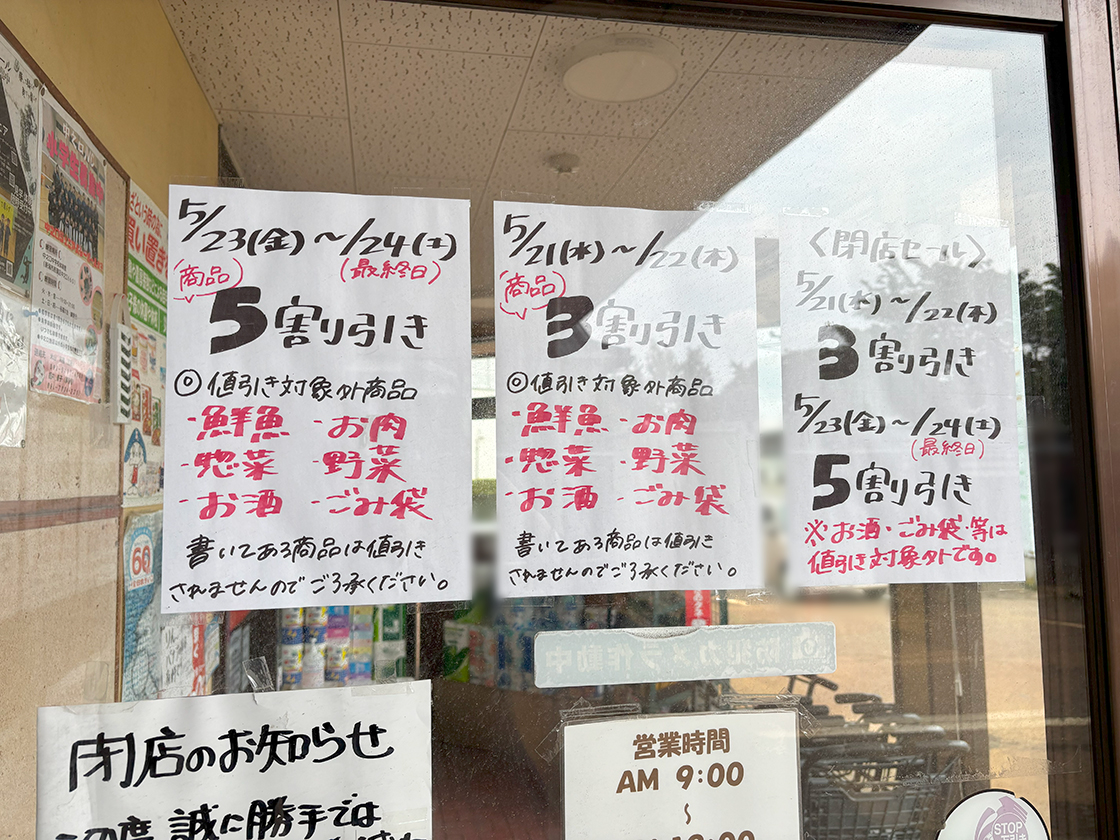 5/23(金)〜/24(土)
(最終日)
商品
5割引き
◎値引き対象外商品
・鮮魚 ・お肉
・惣菜 ・野菜
・お酒 ・ごみ袋
書いてある商品は値引き
されませんのでご了承ください。
5/21(水)〜/22(木)
商品
3割引き
◎値引き対象外商品
・鮮魚 ・お肉
・惣菜 ・野菜
・お酒 ・ごみ袋
書いてある商品は値引き
されませんのでご了承ください。
〈閉店セール〉
5/21(水)〜/22(木)
3割引き
5/23(金)〜/24(土)
(最終日)
5割引き
※お酒・ごみ袋等は
値引き対象外です。
防犯カメラ作動中
閉店のお知らせ
この度、誠に勝手では
営業時間
AM 9:00
〜
STOP
60
買い置き